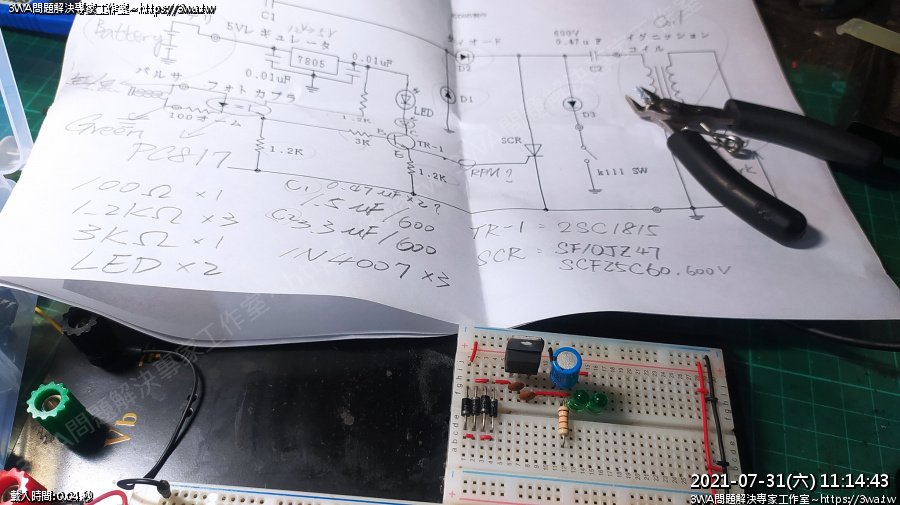 3WA問題解決專家工作室~https://3wa.tw
C1
Battery
5Vレギュレータ
7805
0.01uF
0.01uF
パルサ
フォトカプラ
100オーム
Green
PC817
1.2K
1.2K
3K
LED
TR-1
1.2K
D2
D1
600V
0.47uF
C2
イグニッション
コイル
D3
SCR
kill SW
RPM?
100Ω ×1
1.2KΩ ×3
3KΩ ×1
LED ×2
C1 0.47uF×2?
1.5uF/600
C2 3.3uF/600
1N4007 ×3
TR-1 = 2SC1815
SCR = SF10JZ47
SCF25C60.600V
Vb
2021-07-31(六) 11:14:43
3WA問題解決專家工作室~https://3wa.tw
載入時間: 0.04 秒